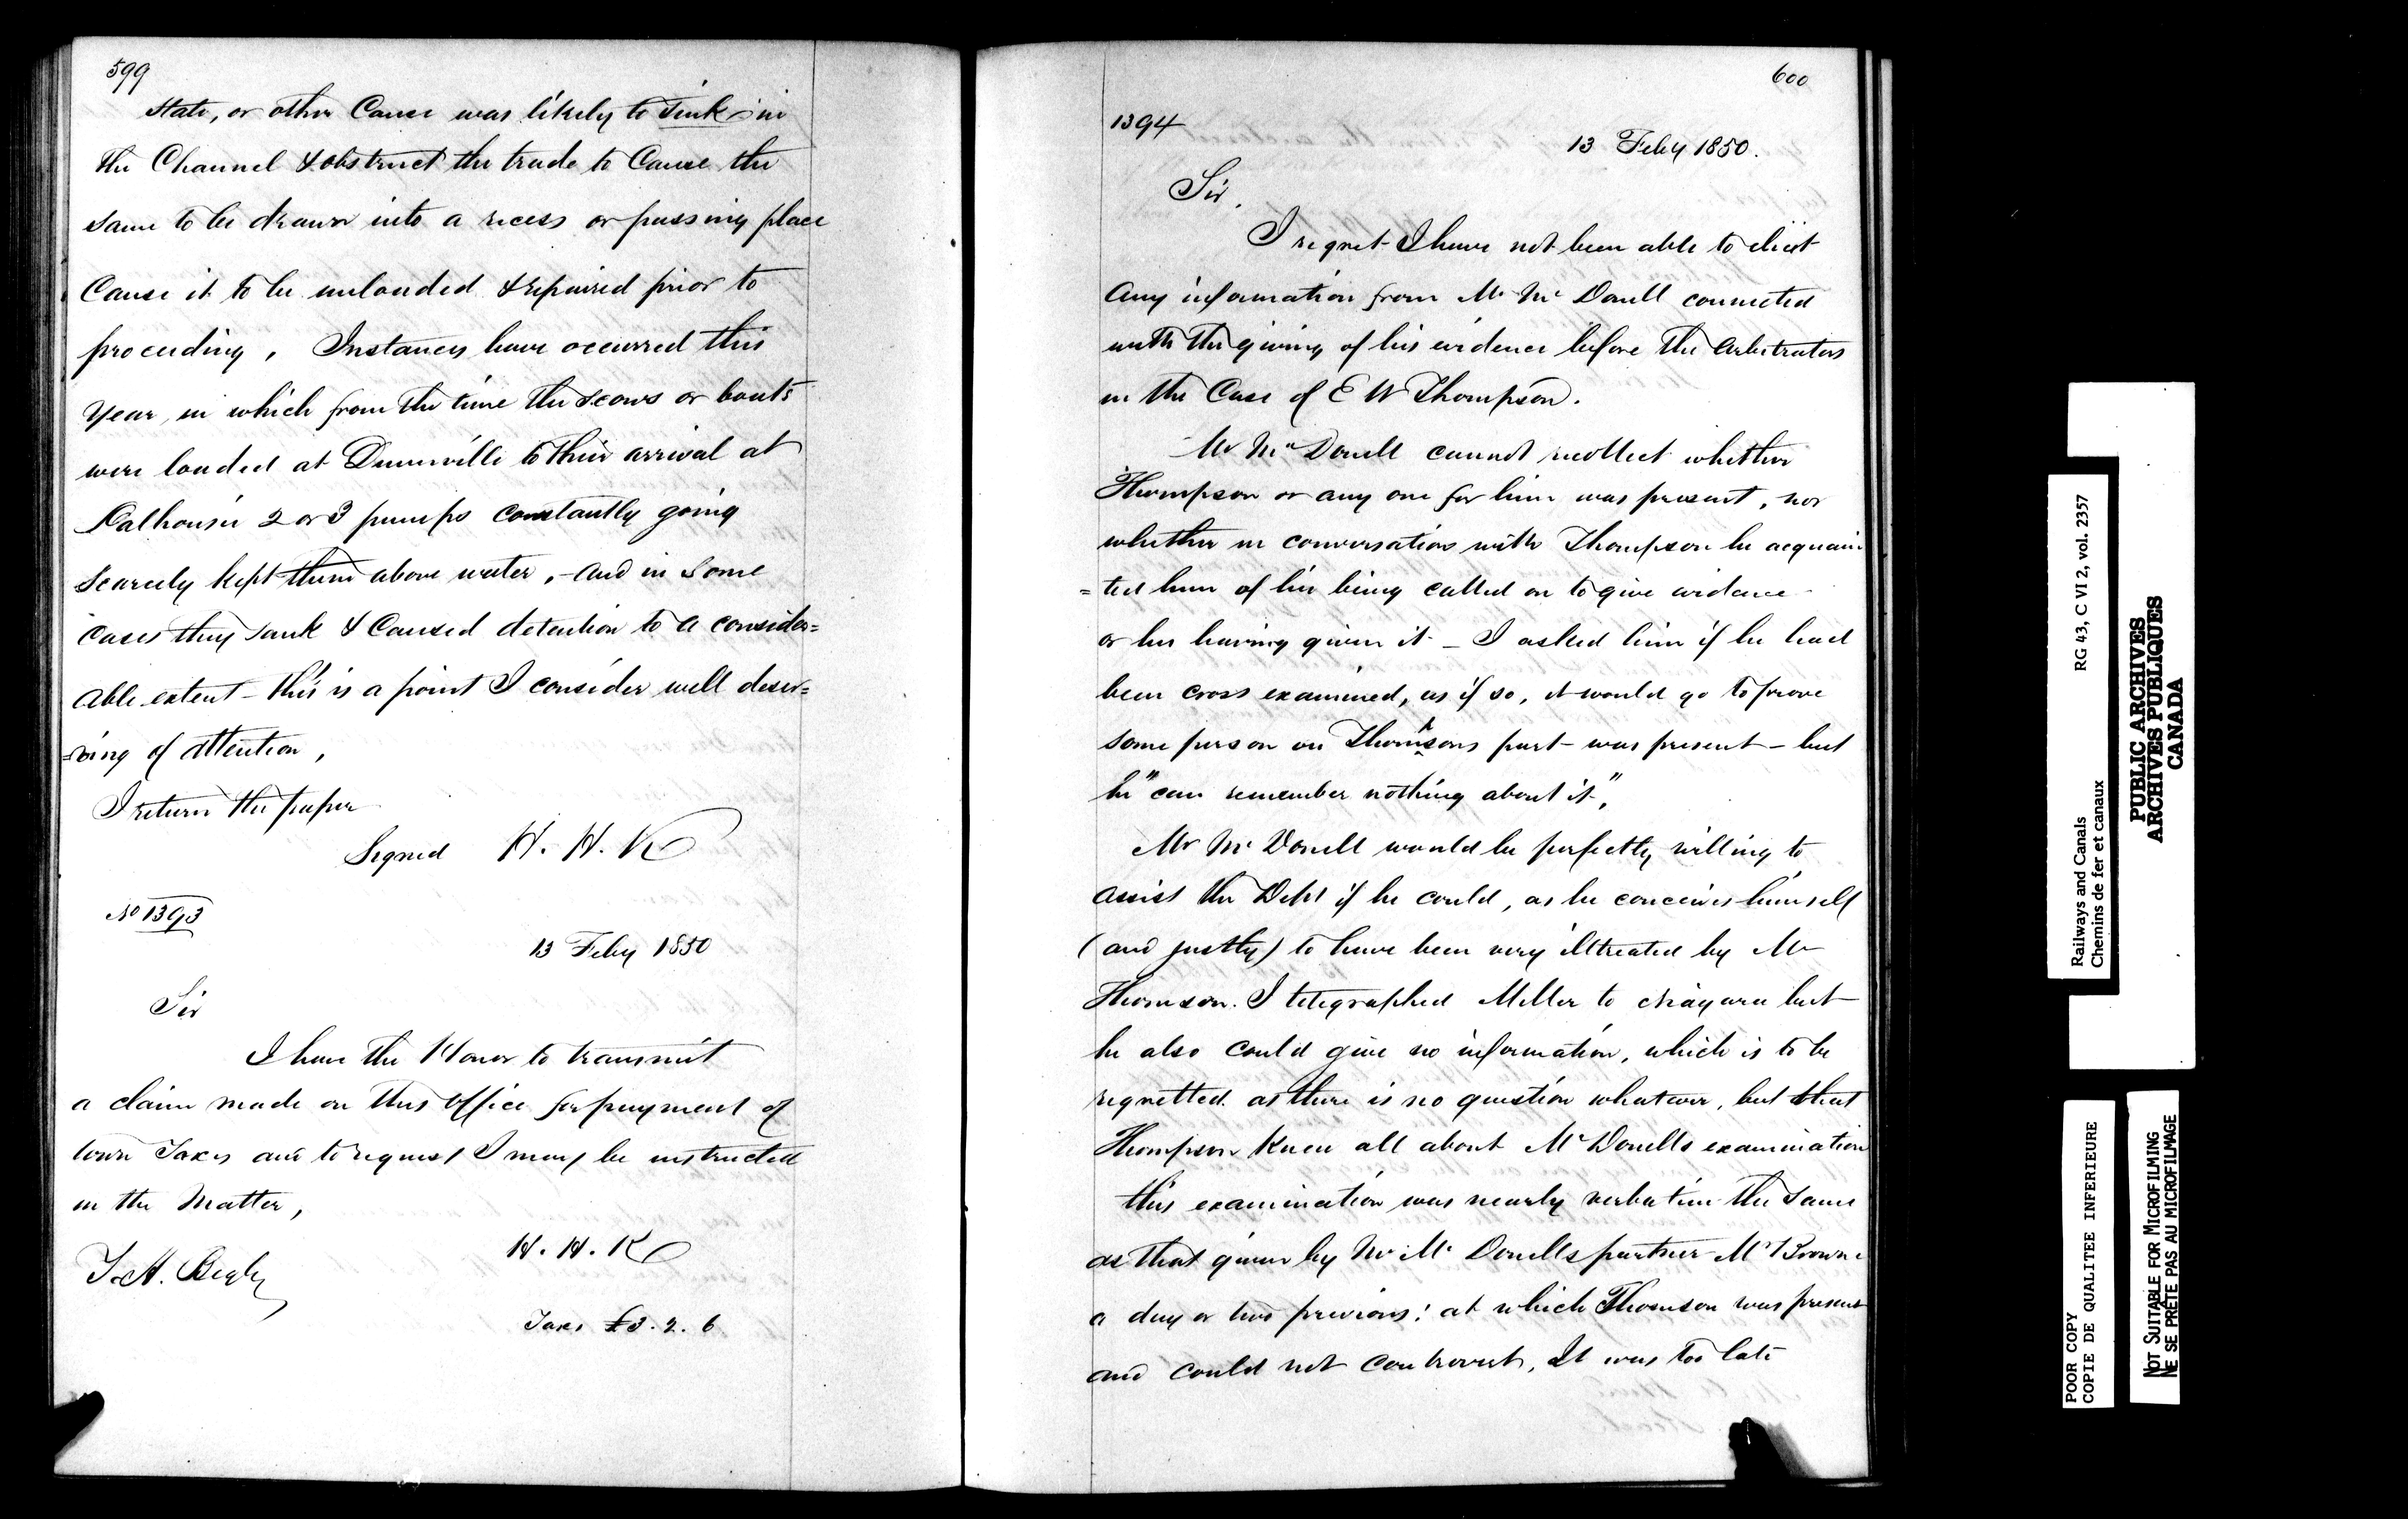 599
State, or other Cause was likely to sink in
the Channel & obstruct the trade to Cause the
same to be drawn into a recess or passing place
Cause it to be unloaded & repaired prior to
proceeding, Instances have occurred this
Year, in which from the time the scows or boats
were loaded at Dunnville to their arrival at
Dalhousie 2 or 3 pumps constantly going
Scarcely kept them above water, - and in some
cases they sank & Caused detention to a consider=
able extent - this is a point I consider well deser=
=ving of attention,
I return the paper
Signed H. H. K
No 1393
13 Feby 1850
Sir
I have the Honor to transmit
a claim made on this Office for payment of
town Taxes and to request I may be instructed
in the Matter,
H. H. K
T. A. Begly
Taxes £3. 2. 6
600
1394
13 Feby 1850.
Sir,
I regret I have not been able to elicit
any information from Mr McDonell connected
with the giving of his evidence before the Arbitrators
in the Case of E W Thompson.
Mr McDonell cannot recollect whether
Thompson or any one for him was present, nor
whether in conversation with Thompson he acquain
= ted him of his being called on to give evidence
or his having given it - I asked him if he had
been cross examined, as if so, it would go to prove
some person on Thompsons part - was present - but
he "can remember nothing about it",
Mr McDonell would be perfectly willing to
assist the Dept if he could, as he conceives himself
(and justly) to have been very illtreated by Mr
Thomson. I telegraphed Miller to Niagara but
he also could give no information, which is to be
regretted. as there is no question whatever, but that
Thompson Knew all about McDonells examination
this examination was nearly verbatim the same
as that given by Mr McDonells partner Mr Browne
a day or two previous! at which Thomson was present
and could not controvert, It was too late
Railways and Canals RG 43, C VI 2, vol. 2357
Chemins de fer et canaux
PUBLIC ARCHIVES
ARCHIVES PUBLIQUES
CANADA
POOR COPY
COPIE DE QUALITEE INFERIEURE
NOT SUITABLE FOR MICROFILMING
NE SE PRÊTE PAS AU MICROFILMAGE